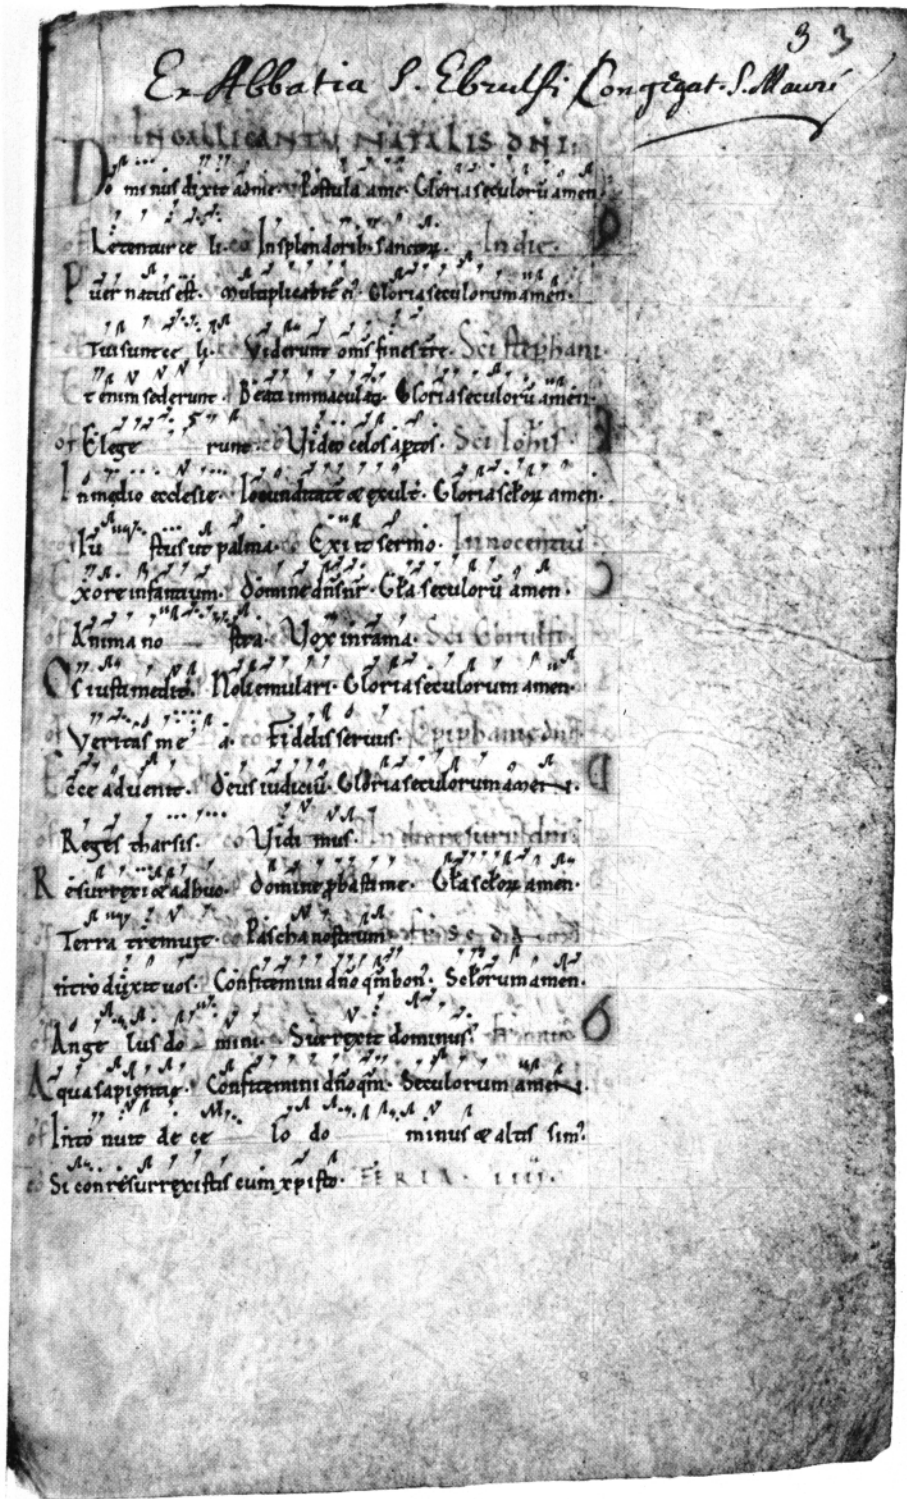 3 3
Ex Abbatia S. Ebrulfi Congregat. S. Mauri
IN GALLICANTU NATALIS DNI.
Do minus dixit adme. Postula ame. Gloria seculorū amen.
of Letentur ce li. co In splendorib. sanctoꝝ. In die.
Puer natus est. Multiplicabit ei'. Gloria seculorum amen.
Tui sunt ce li. co Viderunt om̄s fines tr̄e. Sci stephani.
Et enim sederunt. Beati immaculati. Gloria seculorū amen.
of Elege runt. co Video celos aꝑtos. Sci Iohis.
In medio ecclesie. Iocunditatē & exult'. Gloria scl̄oꝝ amen.
of Iu stus ut palma. co Exiit sermo. Innocentiū.
Ex ore infantium. Domine dn̄s nr̄. Gl̄a seculorū amen.
of Anima no stra. Vox in rama. Sci Ebrulfi.
Os iusti medit'. Noli emulari. Gloria seculorum amen.
of Veritas me a. co Fidelis servus. Epiphanie dni
Ecce advenit. Deus iudiciū. Gloria seculorum amen.
of Reges tharsis. co Vidi mus. In die resurr dni
Resurrexi & adhuc. Domine ꝓbasti me. Gl̄a scl̄oꝝ amen.
of Terra tremuit. co Pascha nostrum
Introduxit vos. Confitemini dn̄o qm̄ bon'. Scl̄orum amen.
of Ange lus do mini. Surrexit dominus.
Aqua sapientie. Confitemini dn̄o qm̄. Seculorum amen.
of Into nuit de ce lo do minus & altis sim'.
co Si con resurrexistis cum xp̄isto. FERIA. IIII.